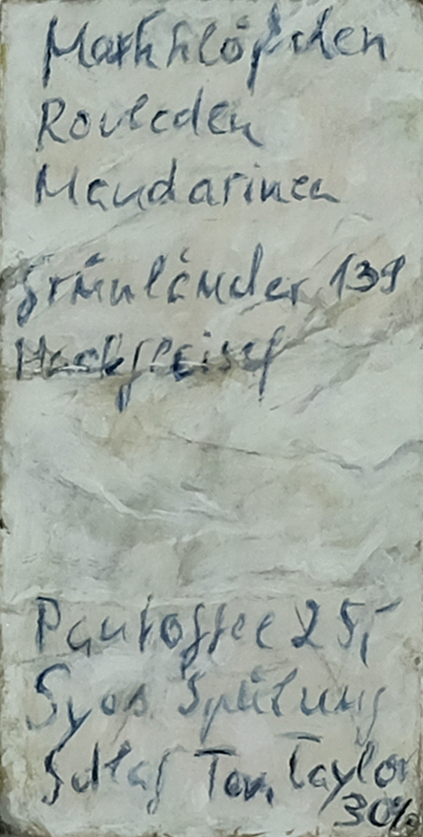 Markklößchen
Rouladen
Mandarinen
Grünländer 139
Hackfleisch
Pantoffel 25,-
Syos Spülung
Schlaf Tom Taylor
30%